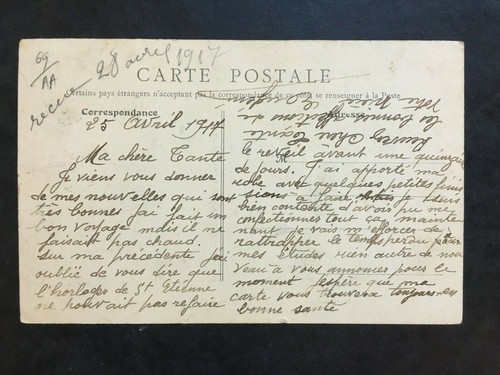 69
AA
recue 28 avril 1917
CARTE POSTALE
Certains pays étrangers n'acceptant pas la correspondance de ce côté se renseigner à la Poste
Correspondance
Adresse
25 Avril 1917
Ma chère Tante
Je viens vous donner
de mes nouvelles qui sont
très bonnes j'ai fait un
bon voyage mais il ne
faisait pas chaud.
Sur ma précédente j'ai
oublié de vous dire que
l'horloger de St Etienne
ne pouvait pas refaire
le reveil avant une quinzaine
de jours. J'ai apporté ma
robe avec quelques petites finis
sions à faire je suis
bien contente d'avoir pu me
confectionner tout ça, mainte
nant je vais m'efforcer de
rattrapper le temps perdu pour
mes études rien autre de nou
veau à vous annoncer pour le
moment j'espère que ma
carte vous trouvera toujours en
bonne santé
Recevez chère Tante
les bonnes affections de
votre nièce